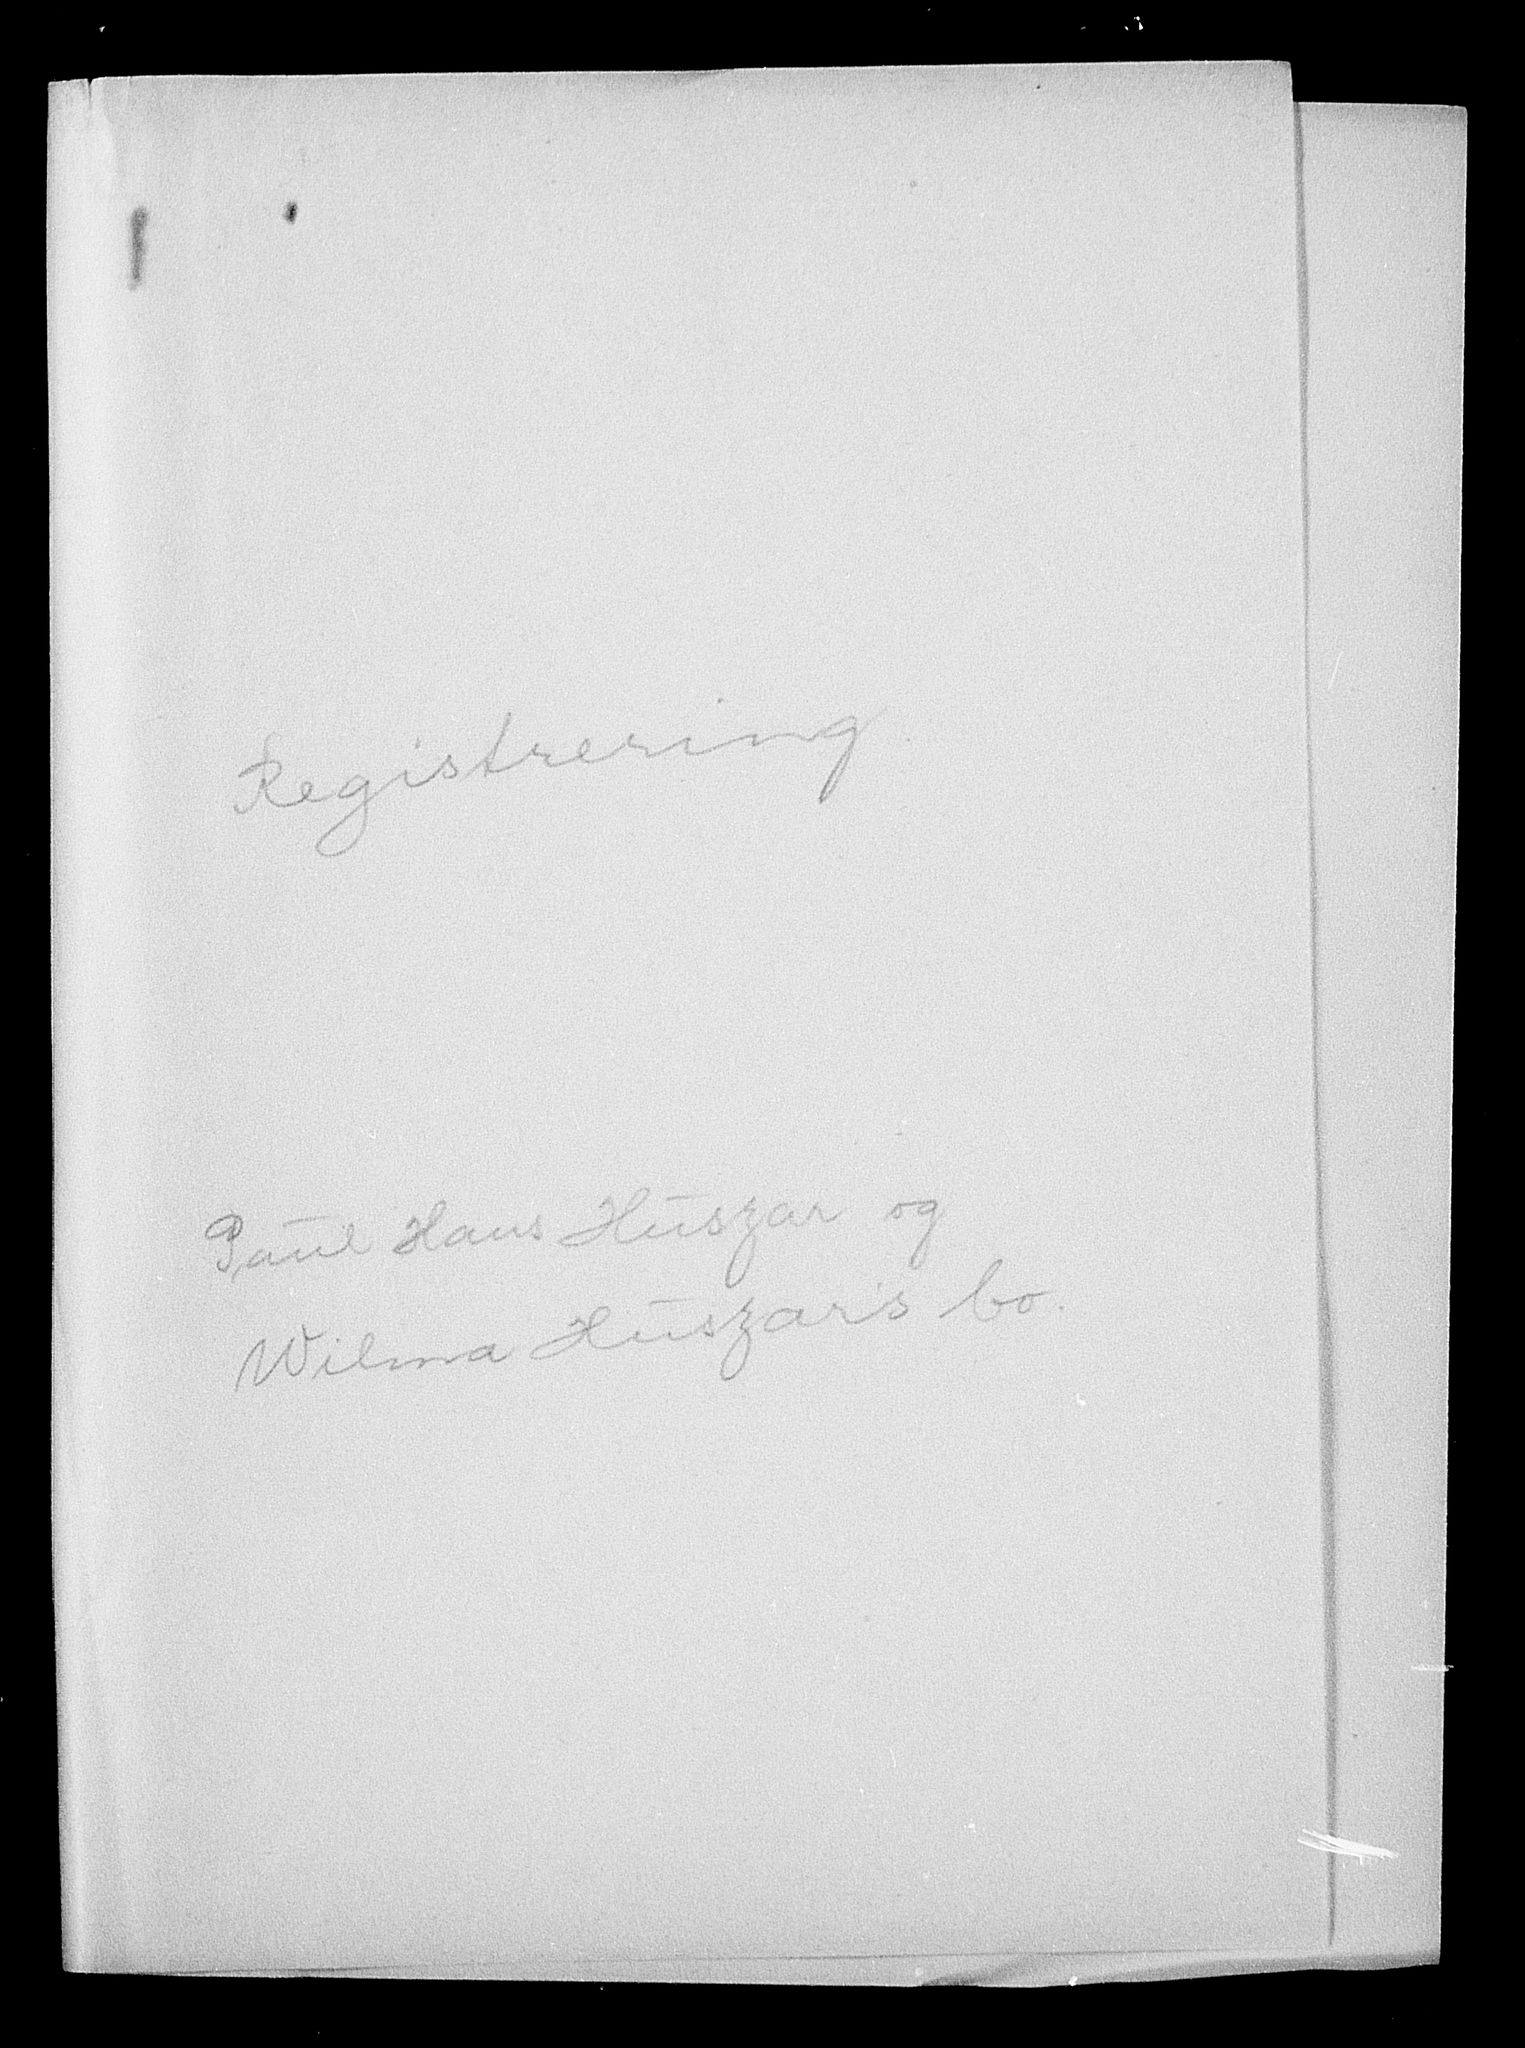 Registrering.
Paul Hans Huszar og
Wilma Huszar's bo.